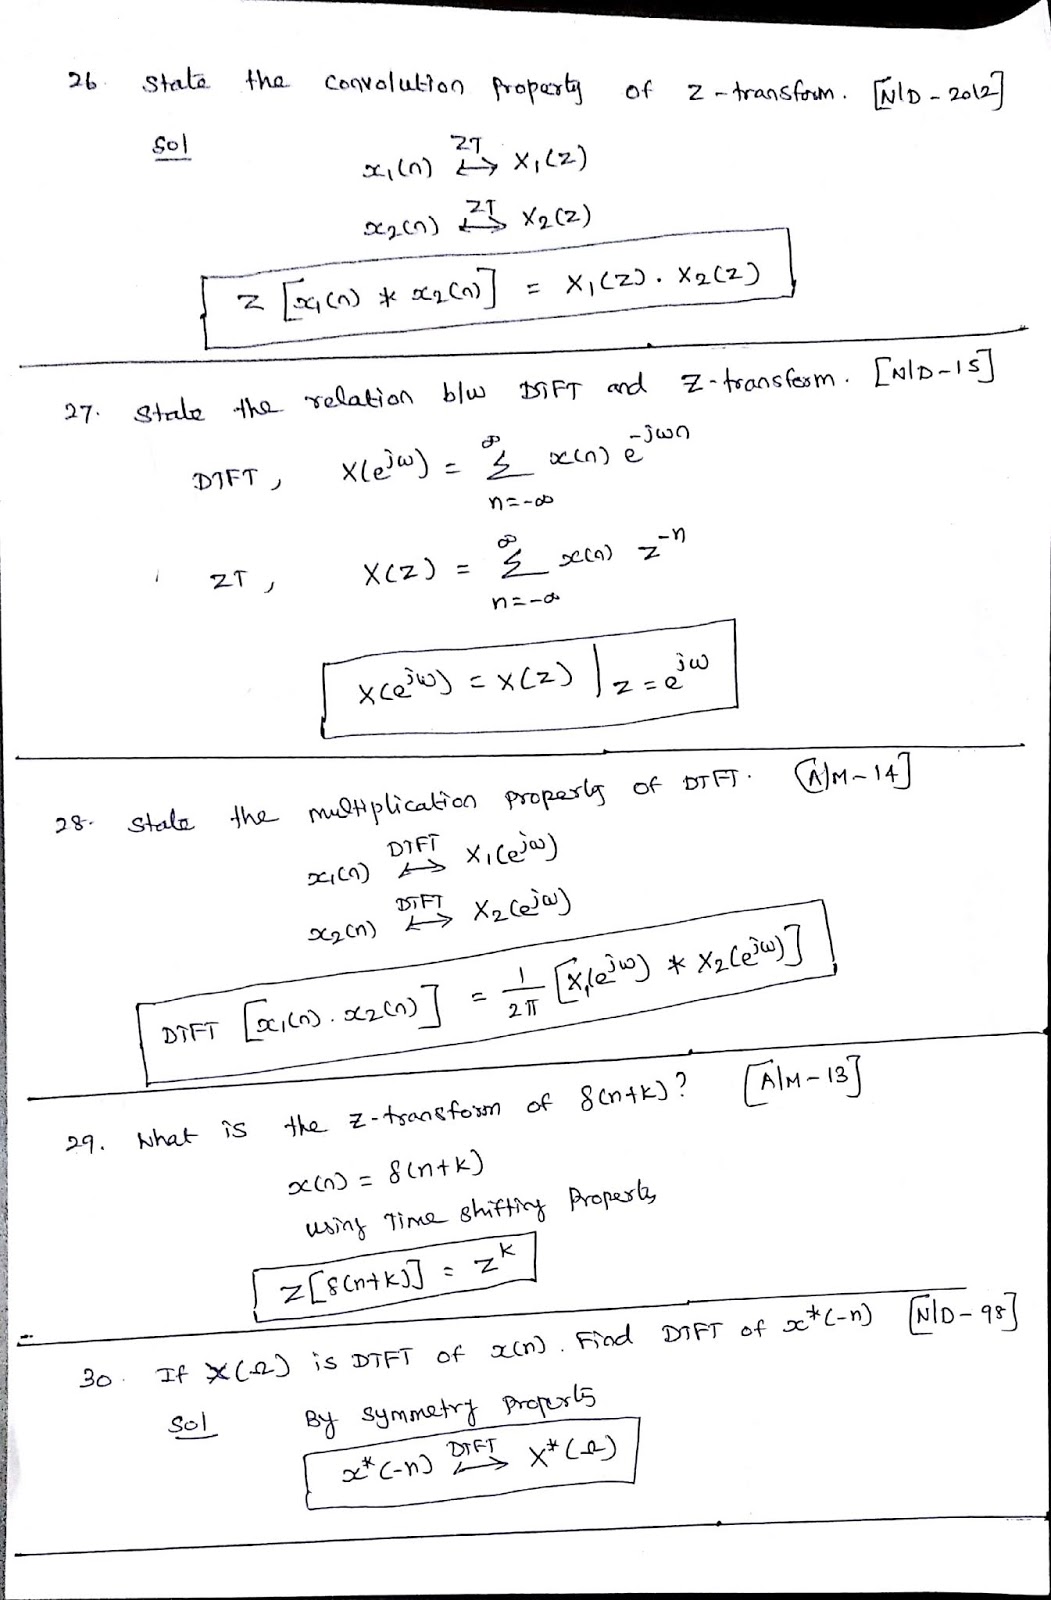 26. State the convolution property of z-transform. [N/D-2012]
Sol
x₁(n) ZT ↔ X₁(z)
x₂(n) ZT ↔ X₂(z)
Z [x₁(n) * x₂(n)] = X₁(z). X₂(z)
27. State the relation b/w DTFT and Z-transform. [N/D-15]
DTFT, X(e^jω) = ∞ Σ n=-∞ x(n) e^-jωn
ZT, X(z) = ∞ Σ n=-∞ x(n) z^-n
X(e^jω) = X(z) | z=e^jω
28. State the multiplication property of DTFT. [A/M-14]
x₁(n) DTFT ↔ X₁(e^jω)
x₂(n) DTFT ↔ X₂(e^jω)
DTFT [x₁(n). x₂(n)] = 1/2π [X₁(e^jω) * X₂(e^jω)]
29. What is the z-transform of δ(n+k)? [A/M-13]
x(n) = δ(n+k)
using Time shifting Property
Z[δ(n+k)] = z^k
30. If X(Ω) is DTFT of x(n). Find DTFT of x*(-n) [N/D-98]
Sol By symmetry Property
x*(-n) DTFT ↔ X*(Ω)